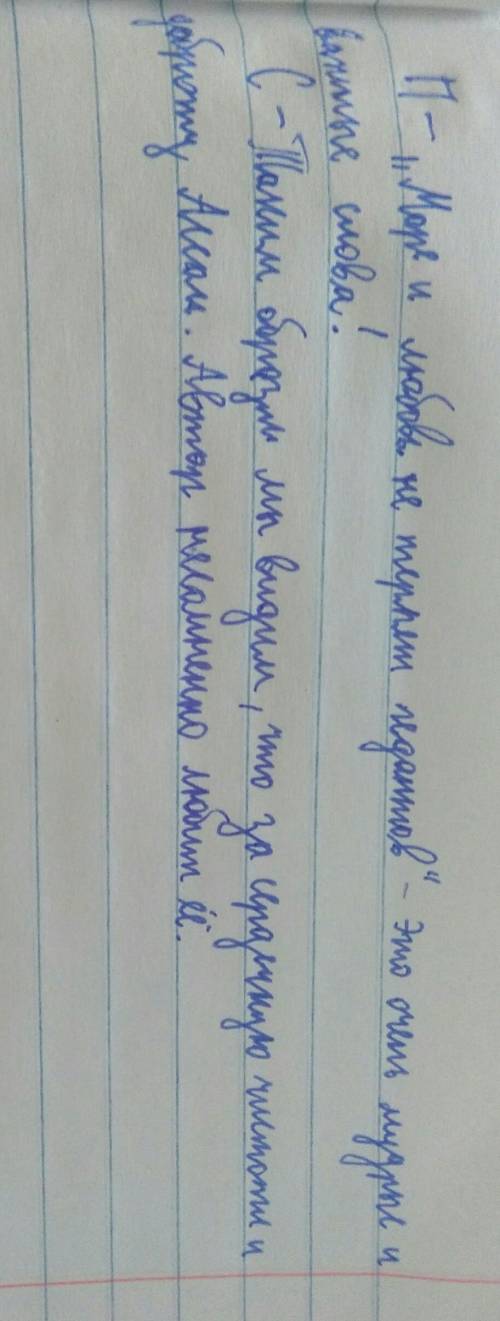 П - „Море и любовь не терпет педантов" - это очень мудрые и
важные слова!
С - Таким образом мы видим, что за сердечную чистоты и
доброту Ассоль. Автор несомненно любит её.